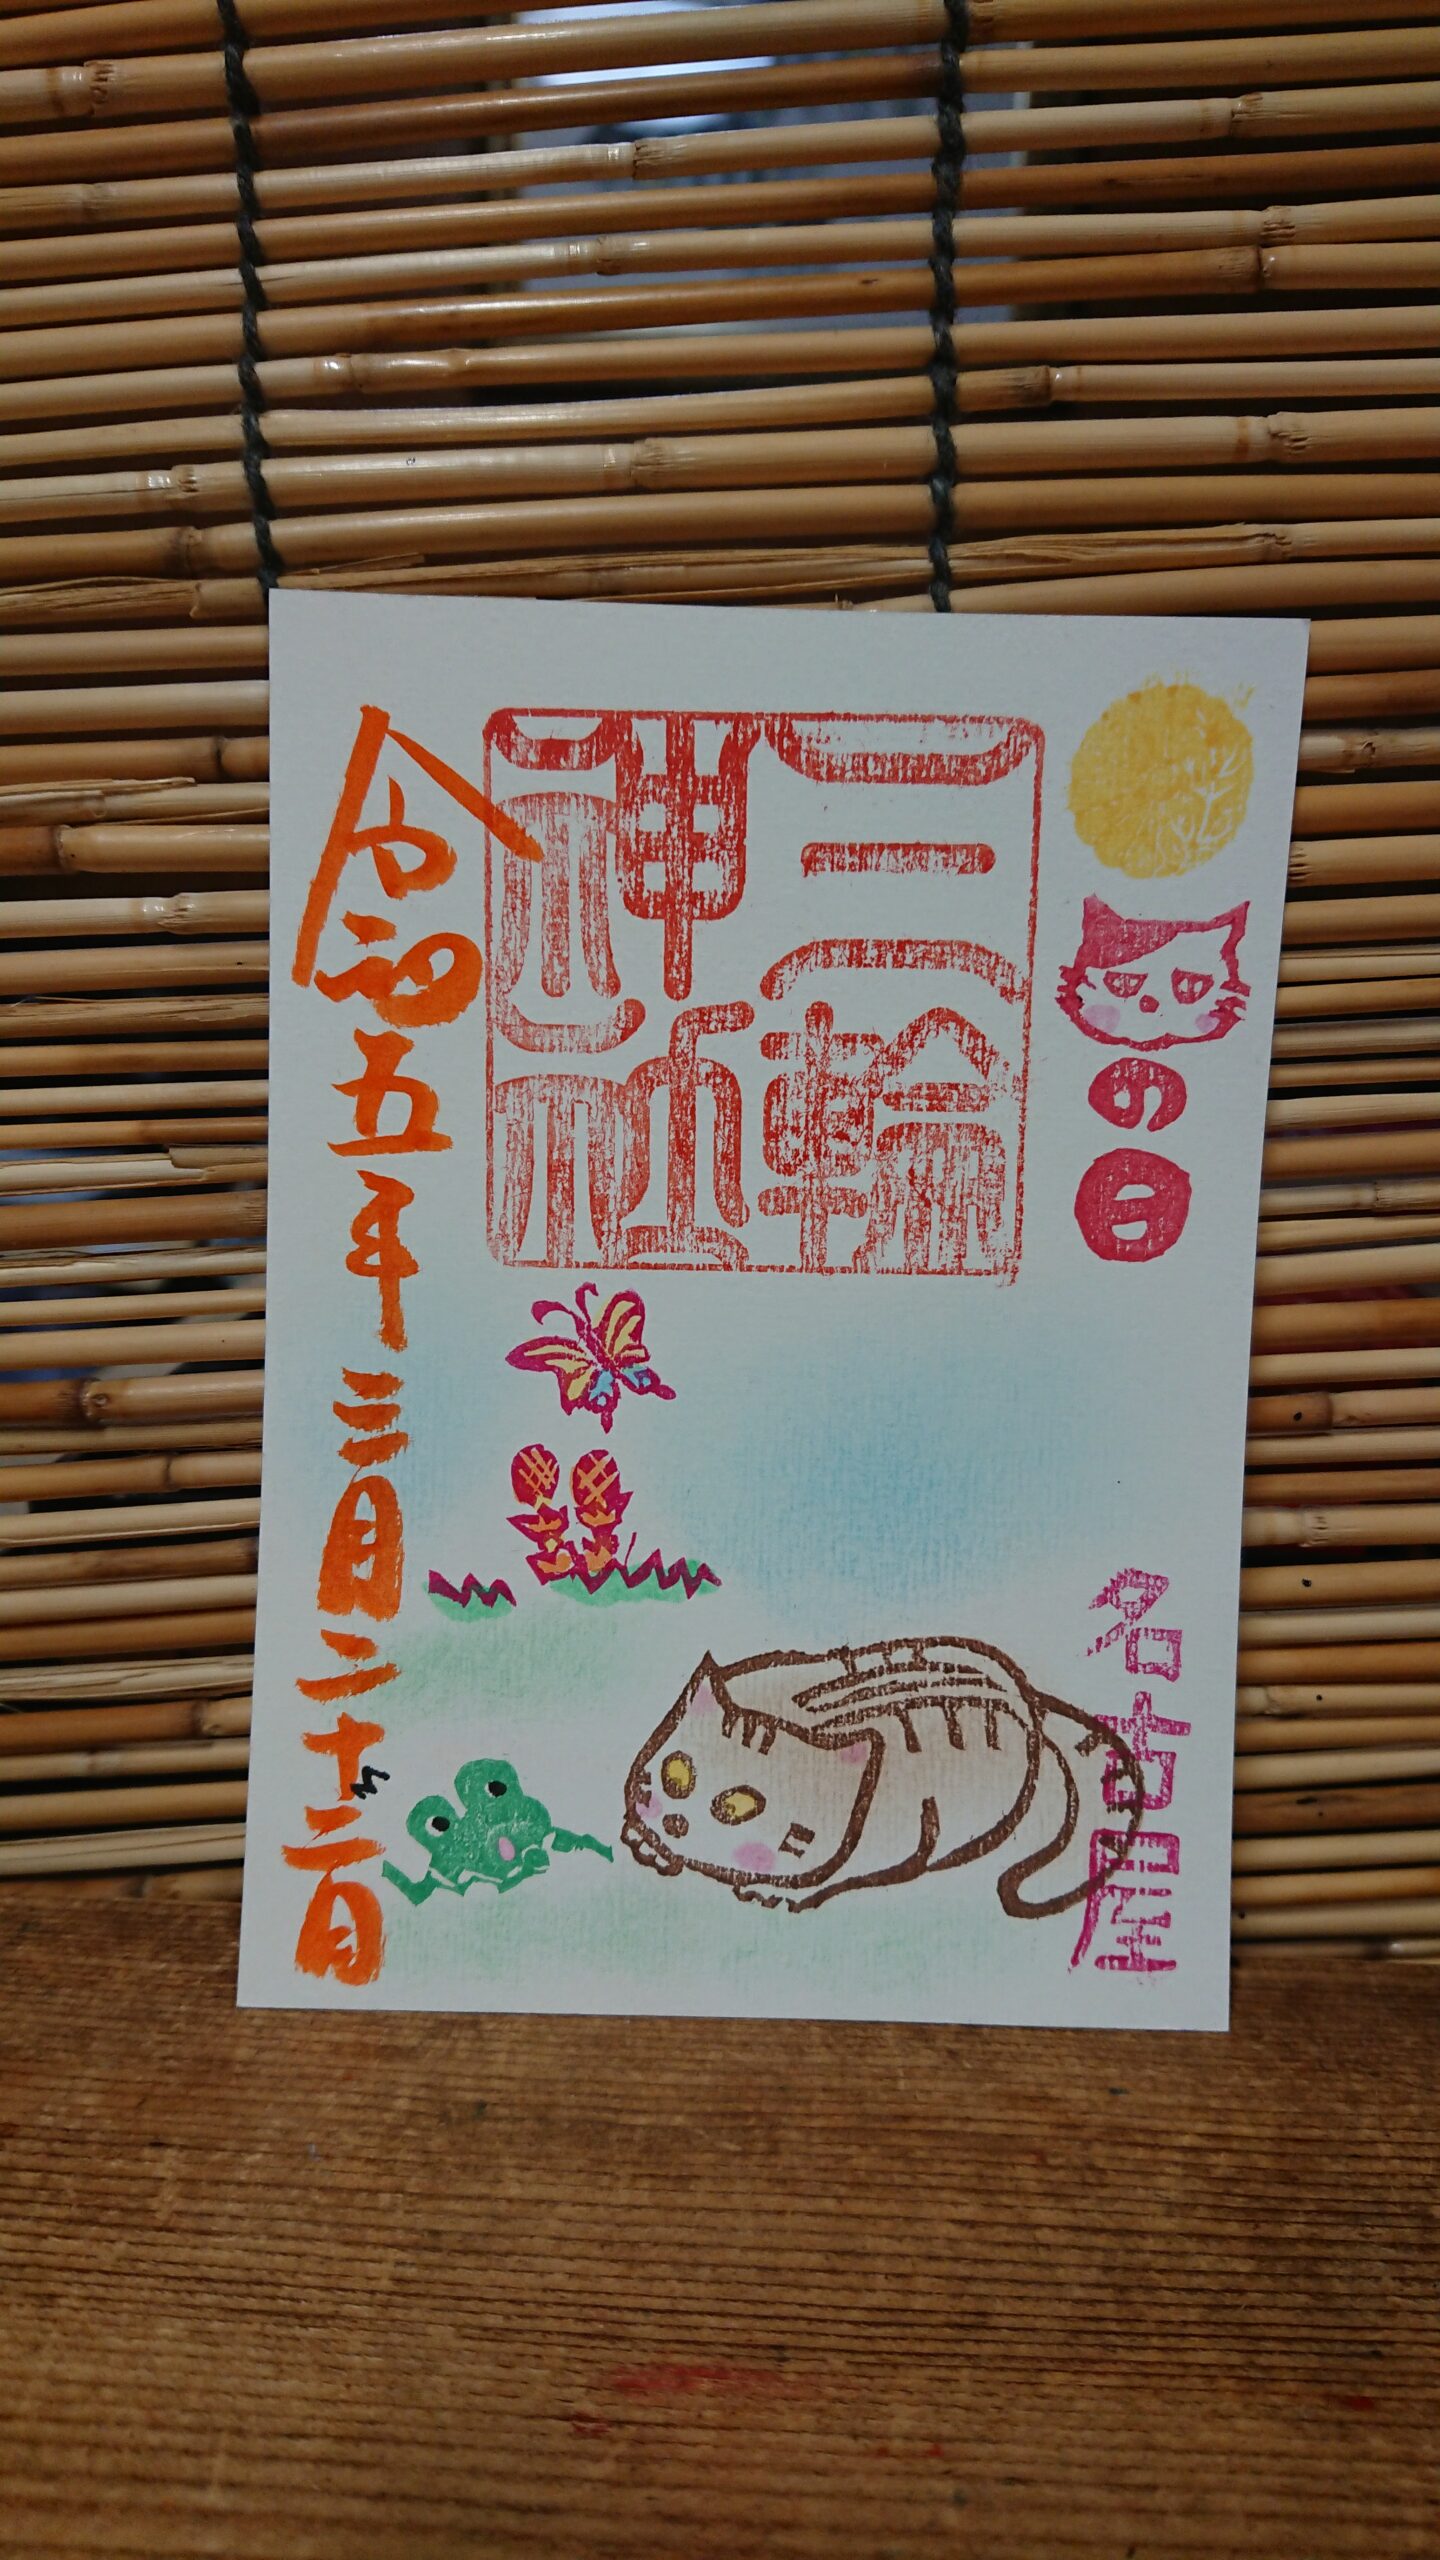 の日
名古屋
三輪
神社
令和五年三月二十二日